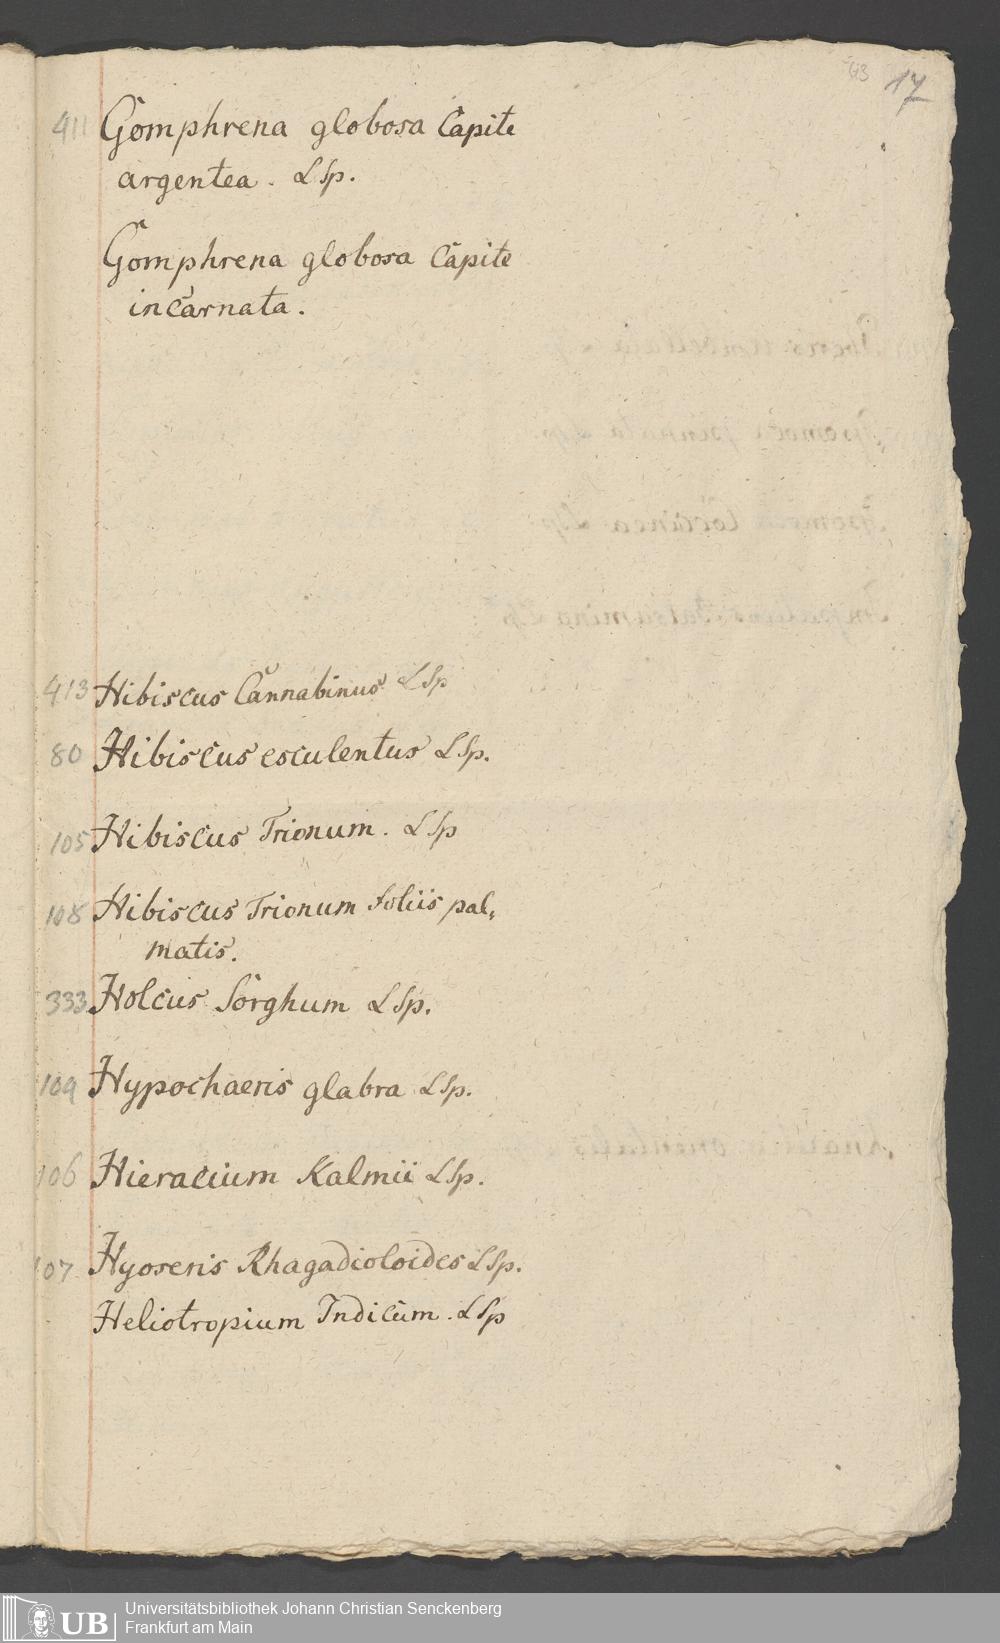 43 17
411 Gomphrena globosa Capite
argentea. LSp.
Gomphrena globosa Capite
incarnata.
413 Hibiscus Cannabinus LSp
80 Hibiscus esculentus LSp.
105 Hibiscus Trionum. LSp
108 Hibiscus Trionum foliis pal,
matis.
333 Holcus Sorghum LSp.
109 Hypochaeris glabra LSp.
106 Hieracium Kalmii LSp.
107 Hyoseris Rhagadioloides LSp.
Heliotropium Indicum. LSp
UB Universitätsbibliothek Johann Christian Senckenberg
Frankfurt am Main